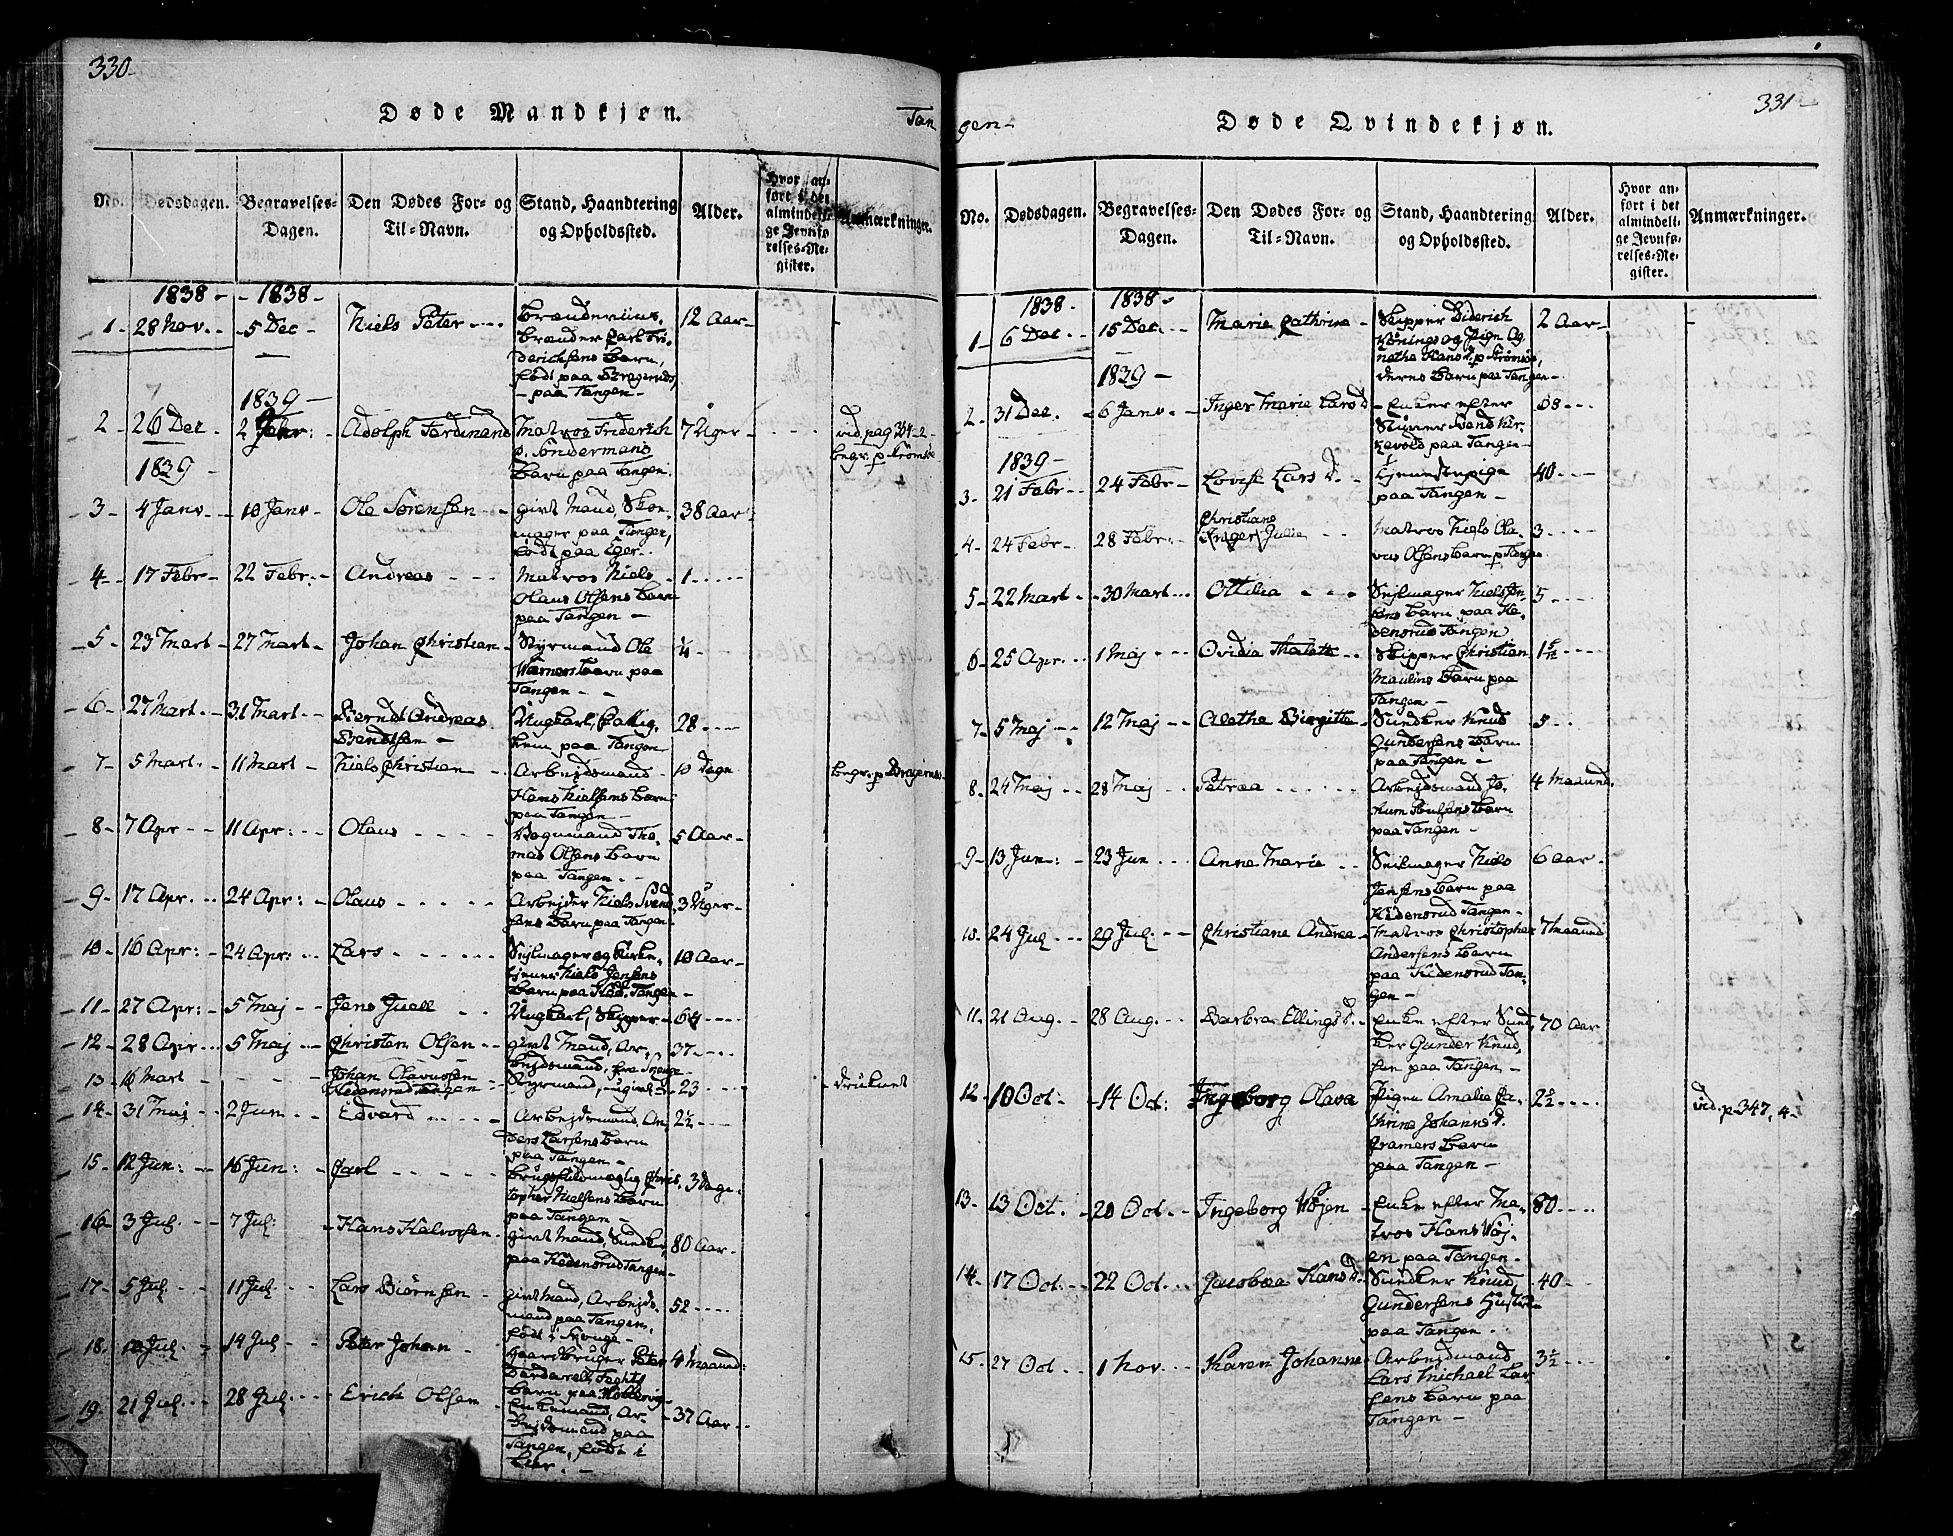 330.
Døde Mandkjøn.
Tan
No.
Dødsdagen.
Begravelses-
Dagen.
Den Dødes For- og
Til-Navn.
Stand, Haandtering
og Opholdssted.
Alder.
Hvor an-
ført i det
almindeli-
ge Jevnfø-
relses-Re-
gister.
Anmærkninger.
1838 - - 1838 -
1 - 28 Nov. - - 5 Dec - Niels Peter - 12 Aar -
brænder Carl Fri-
derichsens Barn,
født paa Bragernæs,
- paa Tangen -
1839 -
2 - 26 Dec 2 Adolph Ferdinand Matros Friderich 7 Uger - vid. pag 334-2-
Søndermans begr. p Strømsø
Barn paa Tangen.
1839 -
3 - 4 Janv - 10 Janv - Ole Sørensen - givt Mand, Sko- 38 Aar -
mager paa Tangen,
født paa Eger -
4 - 17 Febr - 22 Febr. - Andreas - Matros Niels 1 -
Olaus Olsens Barn
paa Tangen -
5 - 23 Mart - 27 Mart - Johan Christian - Styrmand Ole
Barn paa
Tangen -
6 - 27 Mart - 31 Mart - Berndt Andreas Ungkarl, 28 -
Bendtsen - paa Tangen
7 - 5 Mart - 11 Mart - Niels Christian - Arbejdsmand 10 Dage begr. p Bragernæs
Hans Nielsens Barn
paa Tangen -
8 - 7 Apr - 11 Apr: - Olaus - Bogmand Tho- 5 Aar -
mas Olsens Barn
paa Tangen -
9 - 17 Apr. - 24 Apr: - Olaus - Arbejder Niels Svend- 3 Uger -
sens Barn paa Tangen
10 - 16 Apr: - 24 Apr: - Lars - Sejlmager og Kirke- 10 Aar -
tjener Niels Jensens
Barn paa Hed. Tangen -
11 - 27 Apr: - 5 Maj - Jens Juell - Ungkarl, Skipper - 64 -
12 - 28 Apr - 5 Maj - Christen Olsen - givt Mand, Ar- 37 -
bejdsmand, fra
13 - 16 Mart - Johan Olavussen Styrmand, ugivt - 23 - druknet
Hedensrud Tangen
14 - 31 Maj - 2 Jun - Edvard - Arbejdsmand An- 2½ -
ders Larsens Barn
paa Tangen -
15 - 12 Jun: - 16 Jun: - Carl - Chris- 3 Dage:
topher Nielsens Barn
paa Tangen -
16 - 3 Jul. - 7 Jul: - Hans Halvorsen - givt Mand, Sundker, 80 Aar -
paa Hedensrud Tangen -
17 - 5 Jul - 11 Jul. - Lars Biørnsen - givt Mand, Arbejds- 52 -
mand paa Tangen,
født i
18 - 10 Jul. - 14 Jul - Peter Johan - Gaardbruger Peter 4 Maaned:
Barn paa
19 - 21 Jul. - 28 Jul. - Erich Olsen - Enkemand, Ar- 37 Aar -
bejdsmand paa
Tangen, født i
Lier. -
331 -
gen -
Døde Qvindekjøn.
No.
Dødsdagen.
Begravelses-
Dagen.
Den Dødes For- og
Til-Navn.
Stand, Haandtering
og Opholdssted.
Alder.
Hvor an-
ført i det
almindeli-
ge Jevnfø-
relses-Re-
gister.
Anmærkninger.
1838 - 1838 -
1 - 6 Dec - 15 Dec. - Marie Cathrine - Skipper Diderich 2 Aar -
Königs og Pigen Ag-
nethe Hans D. p Strømsøe,
deres Barn paa Tangen -
1839 -
2 - 31 Dec. - 6 Janv. - Inger Marie Lars D - Enke efter 68 -
Svend Kir-
kevold paa Tangen -
1839 -
3 - 21 Febr - 24 Febr - Lovise Lars D. - Tjenestepige 40 -
paa Tangen -
4 - 24 Febr - 28 Febr: - Christiane Matros Niels Ola- 3 -
Inger Julie vus Olsens Barn p Tangen
5 - 22 Mart - 30 Mart - Ottilia - Sejlmager Niels Jen- 5 -
sens Barn paa He-
densrud Tangen
6 - 25 Apr. - 1 Maj - Ovidia - Skipper Christian
Maulins Barn paa
Tangen -
7 - 5 Maj - 12 Maj - Alethe Birgitte - Sundker Knud 5 -
Gundersens Barn
paa Tangen -
8 - 24 Maj - 28 Maj - Petrea - Arbejdsmand Jo- 4 Maaned.
Barn
paa Tangen -
9 - 13 Jun: - 23 Jun - Anne Marie - Sejlmager Niels 6 Aar -
Jensens Barn paa
Hedensrud Tangen -
10 - 24 Jul - 29 Jul. - Christiane Andrea - Matros Christopher 7 Maaned
Andersens Barn
paa Hedensrud Tan-
gen -
11 - 21 Aug. - 28 Aug. - Barbra Ellings D. - Enke efter Sund- 70 Aar
ker Gunder Knud-
sen paa Tangen -
12 - 10 Oct: - 14 Oct: Ingeborg Olava Pigen Amalia Ca- 2½ - vid. p 347, 4 -
thrine Johannes D.
Kramers Barn
paa Tangen -
13 - 13 Oct. - 20 Oct. - Ingeborg Højen - Enke efter Ma- 80 -
tros Hans Høj-
en paa Tangen -
14 - 17 Oct. - 22 Oct. - Jacobæa Hans D. - Sundker Knud 40 -
Gundersens Hustrue
paa Tangen -
15 - 27 Oct - 1 Nov. - Karen Johanne Arbejdsmand 3½ -
Lars Michael Lar-
sens Barn paa
Tangen -